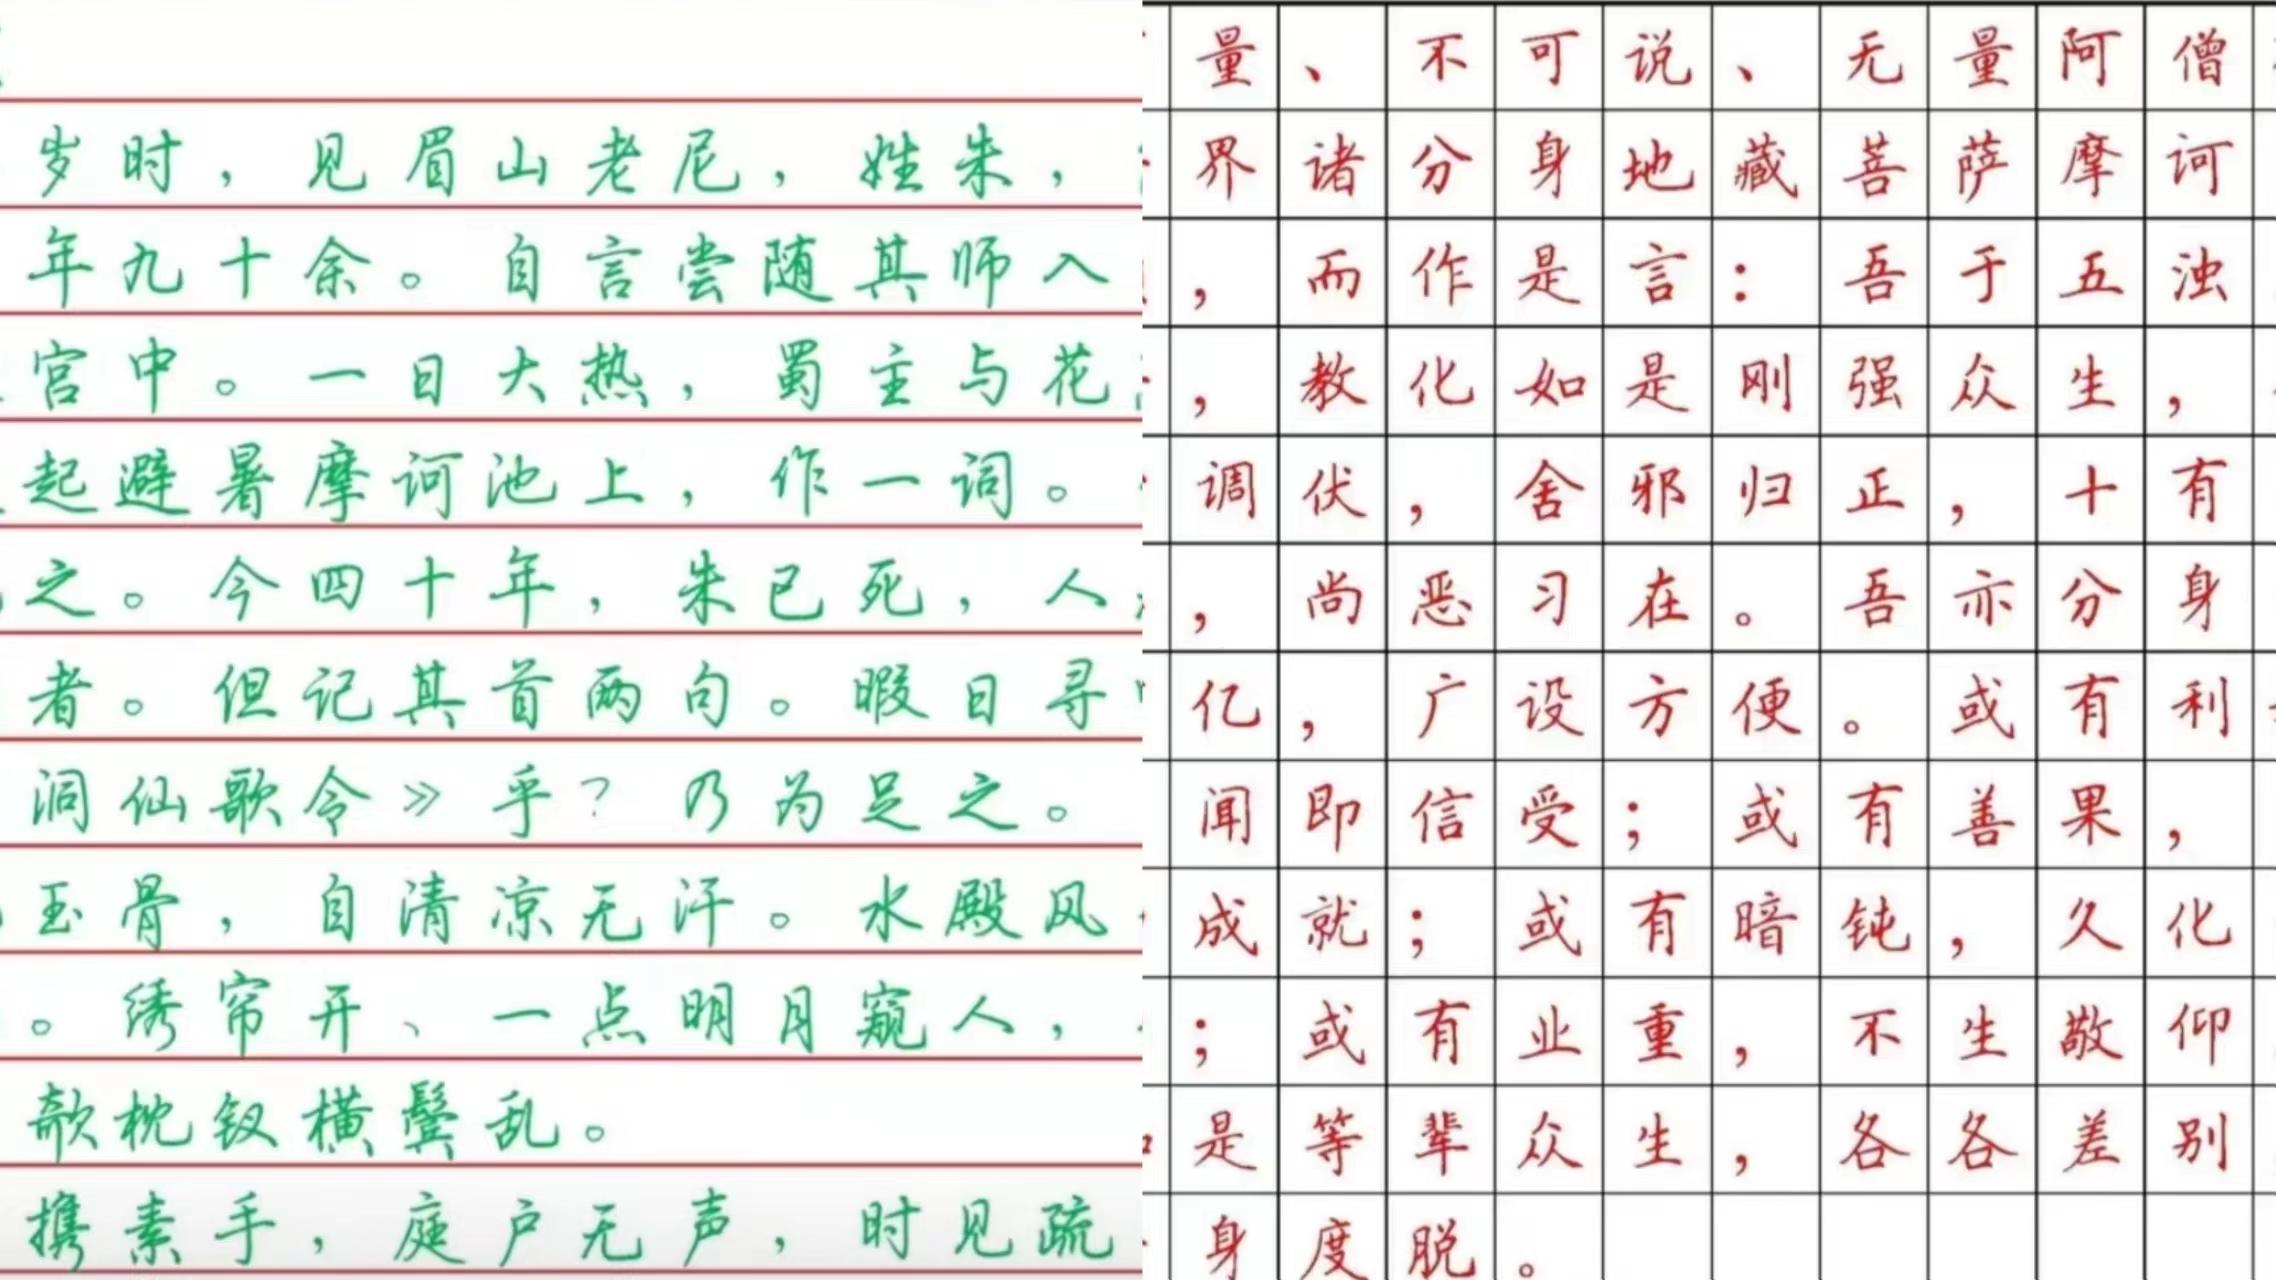 岁时，见眉山老尼，姓朱，
年九十余。自言尝随其师入
宫中。一日大热，蜀主与花
起避暑摩诃池上，作一词。
之。今四十年，朱已死，人
者。但记其首两句。暇日寻
洞仙歌令》乎？乃为足之。
玉骨，自清凉无汗。水殿风
。绣帘开、一点明月窥人，
欹枕钗横鬓乱。
携素手，庭户无声，时见疏
量、不可说、无量阿僧
界诸分身地藏菩萨摩诃
，而作是言：吾于五浊
，教化如是刚强众生，
调伏，舍邪归正，十有
，尚恶习在。吾亦分身
亿，广设方便。或有利
闻即信受；或有善果，
成就；或有暗钝，久化
；或有业重，不生敬仰
是等辈众生，各各差别
身度脱。